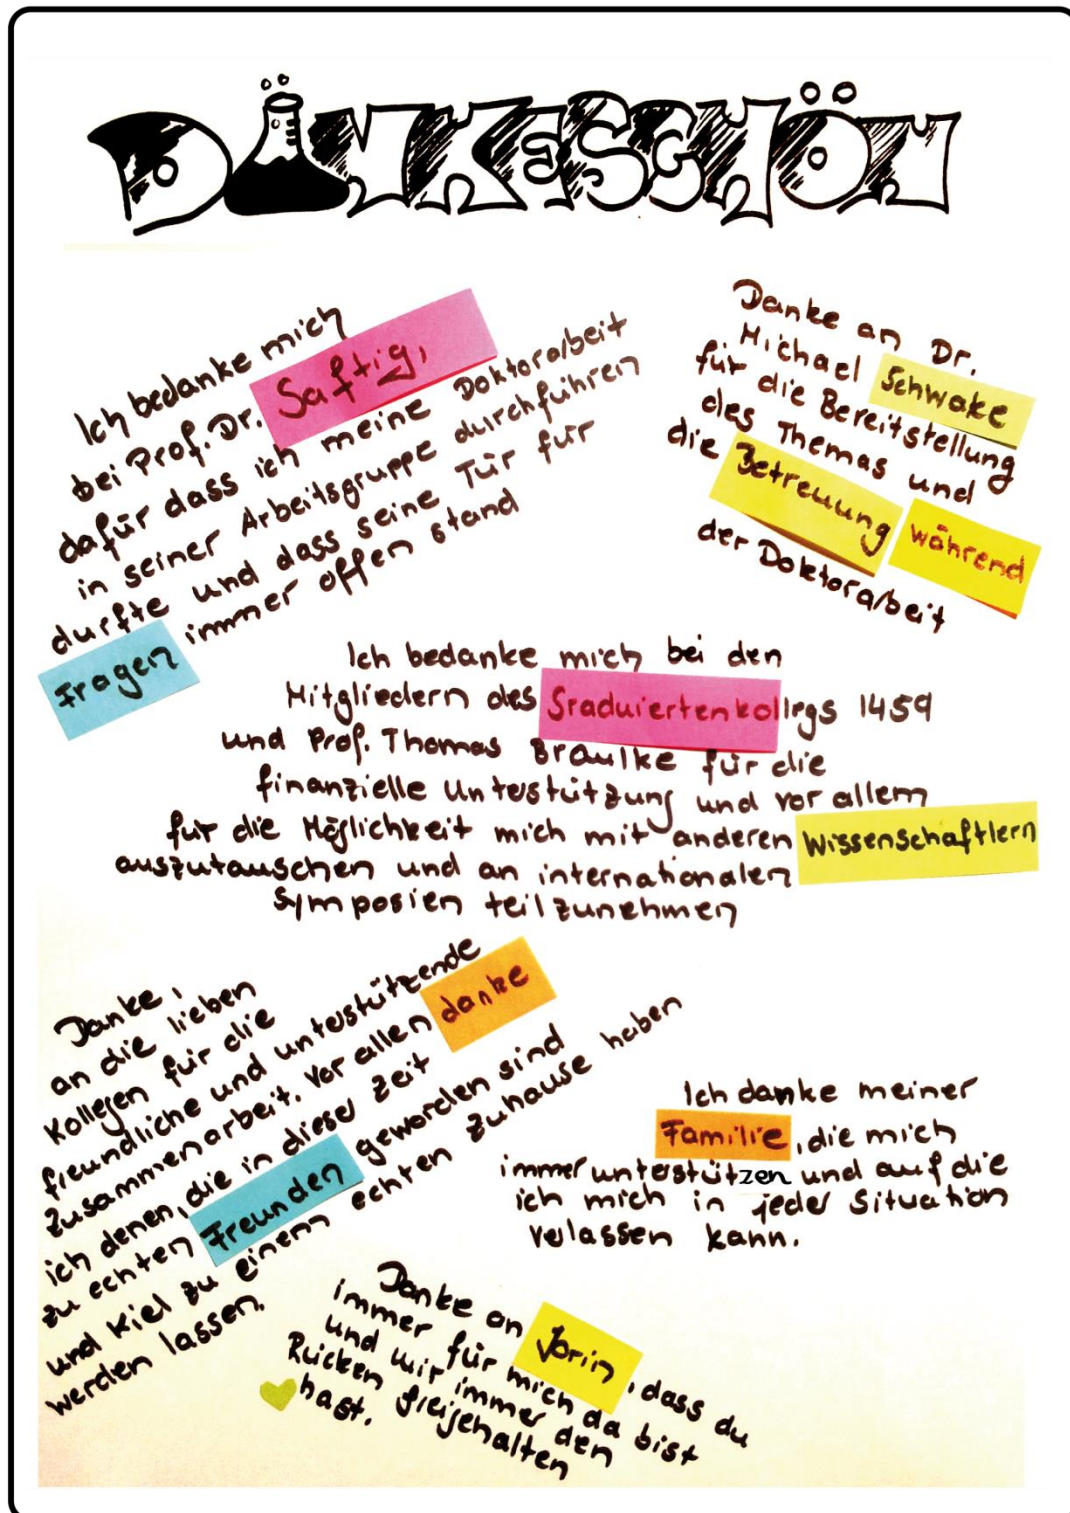 DANKESCHÖN
Ich bedanke mich
bei Prof. Dr. Saftig,
dafür dass ich meine Doktorarbeit
in seiner Arbeitsgruppe durchführen
durfte und dass seine Tür für
Fragen immer offen stand
Danke an Dr.
Michael Schwake
für die Bereitstellung
des Themas und
die Betreuung während
der Doktorarbeit
Ich bedanke mich bei den
Mitgliedern des Graduiertenkollegs 1459
und Prof. Thomas Braulke für die
finanzielle Unterstützung und vor allem
für die Möglichkeit mich mit anderen Wissenschaftlern
auszutauschen und an internationalen
Symposien teilzunehmen
Danke,
an die lieben
Kollegen für die
freundliche und unterstützende
Zusammenarbeit. Vor allen danke
ich denen, die in dieser Zeit
zu echten Freunden geworden sind
und Kiel zu einem echten Zuhause haben
werden lassen.
Ich danke meiner
Familie, die mich
immer unterstützen und auf die
ich mich in jeder Situation
verlassen kann.
Danke an Jorin, dass du
immer für mich da bist
und mir immer den
Rücken freigehalten
hast.